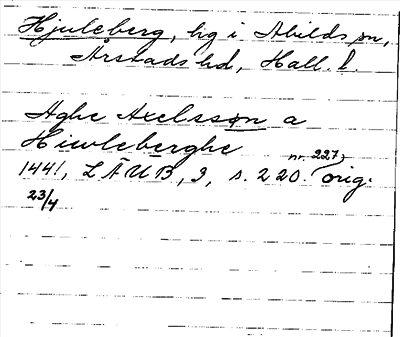 Hjuleberg, hg i Abilds sn,
Årstads hd, Hall. l.
Aghe Axelsson a
Hiwleberghe
nr 227,
1441, LÄUB, 3, s. 220. orig.
23/4